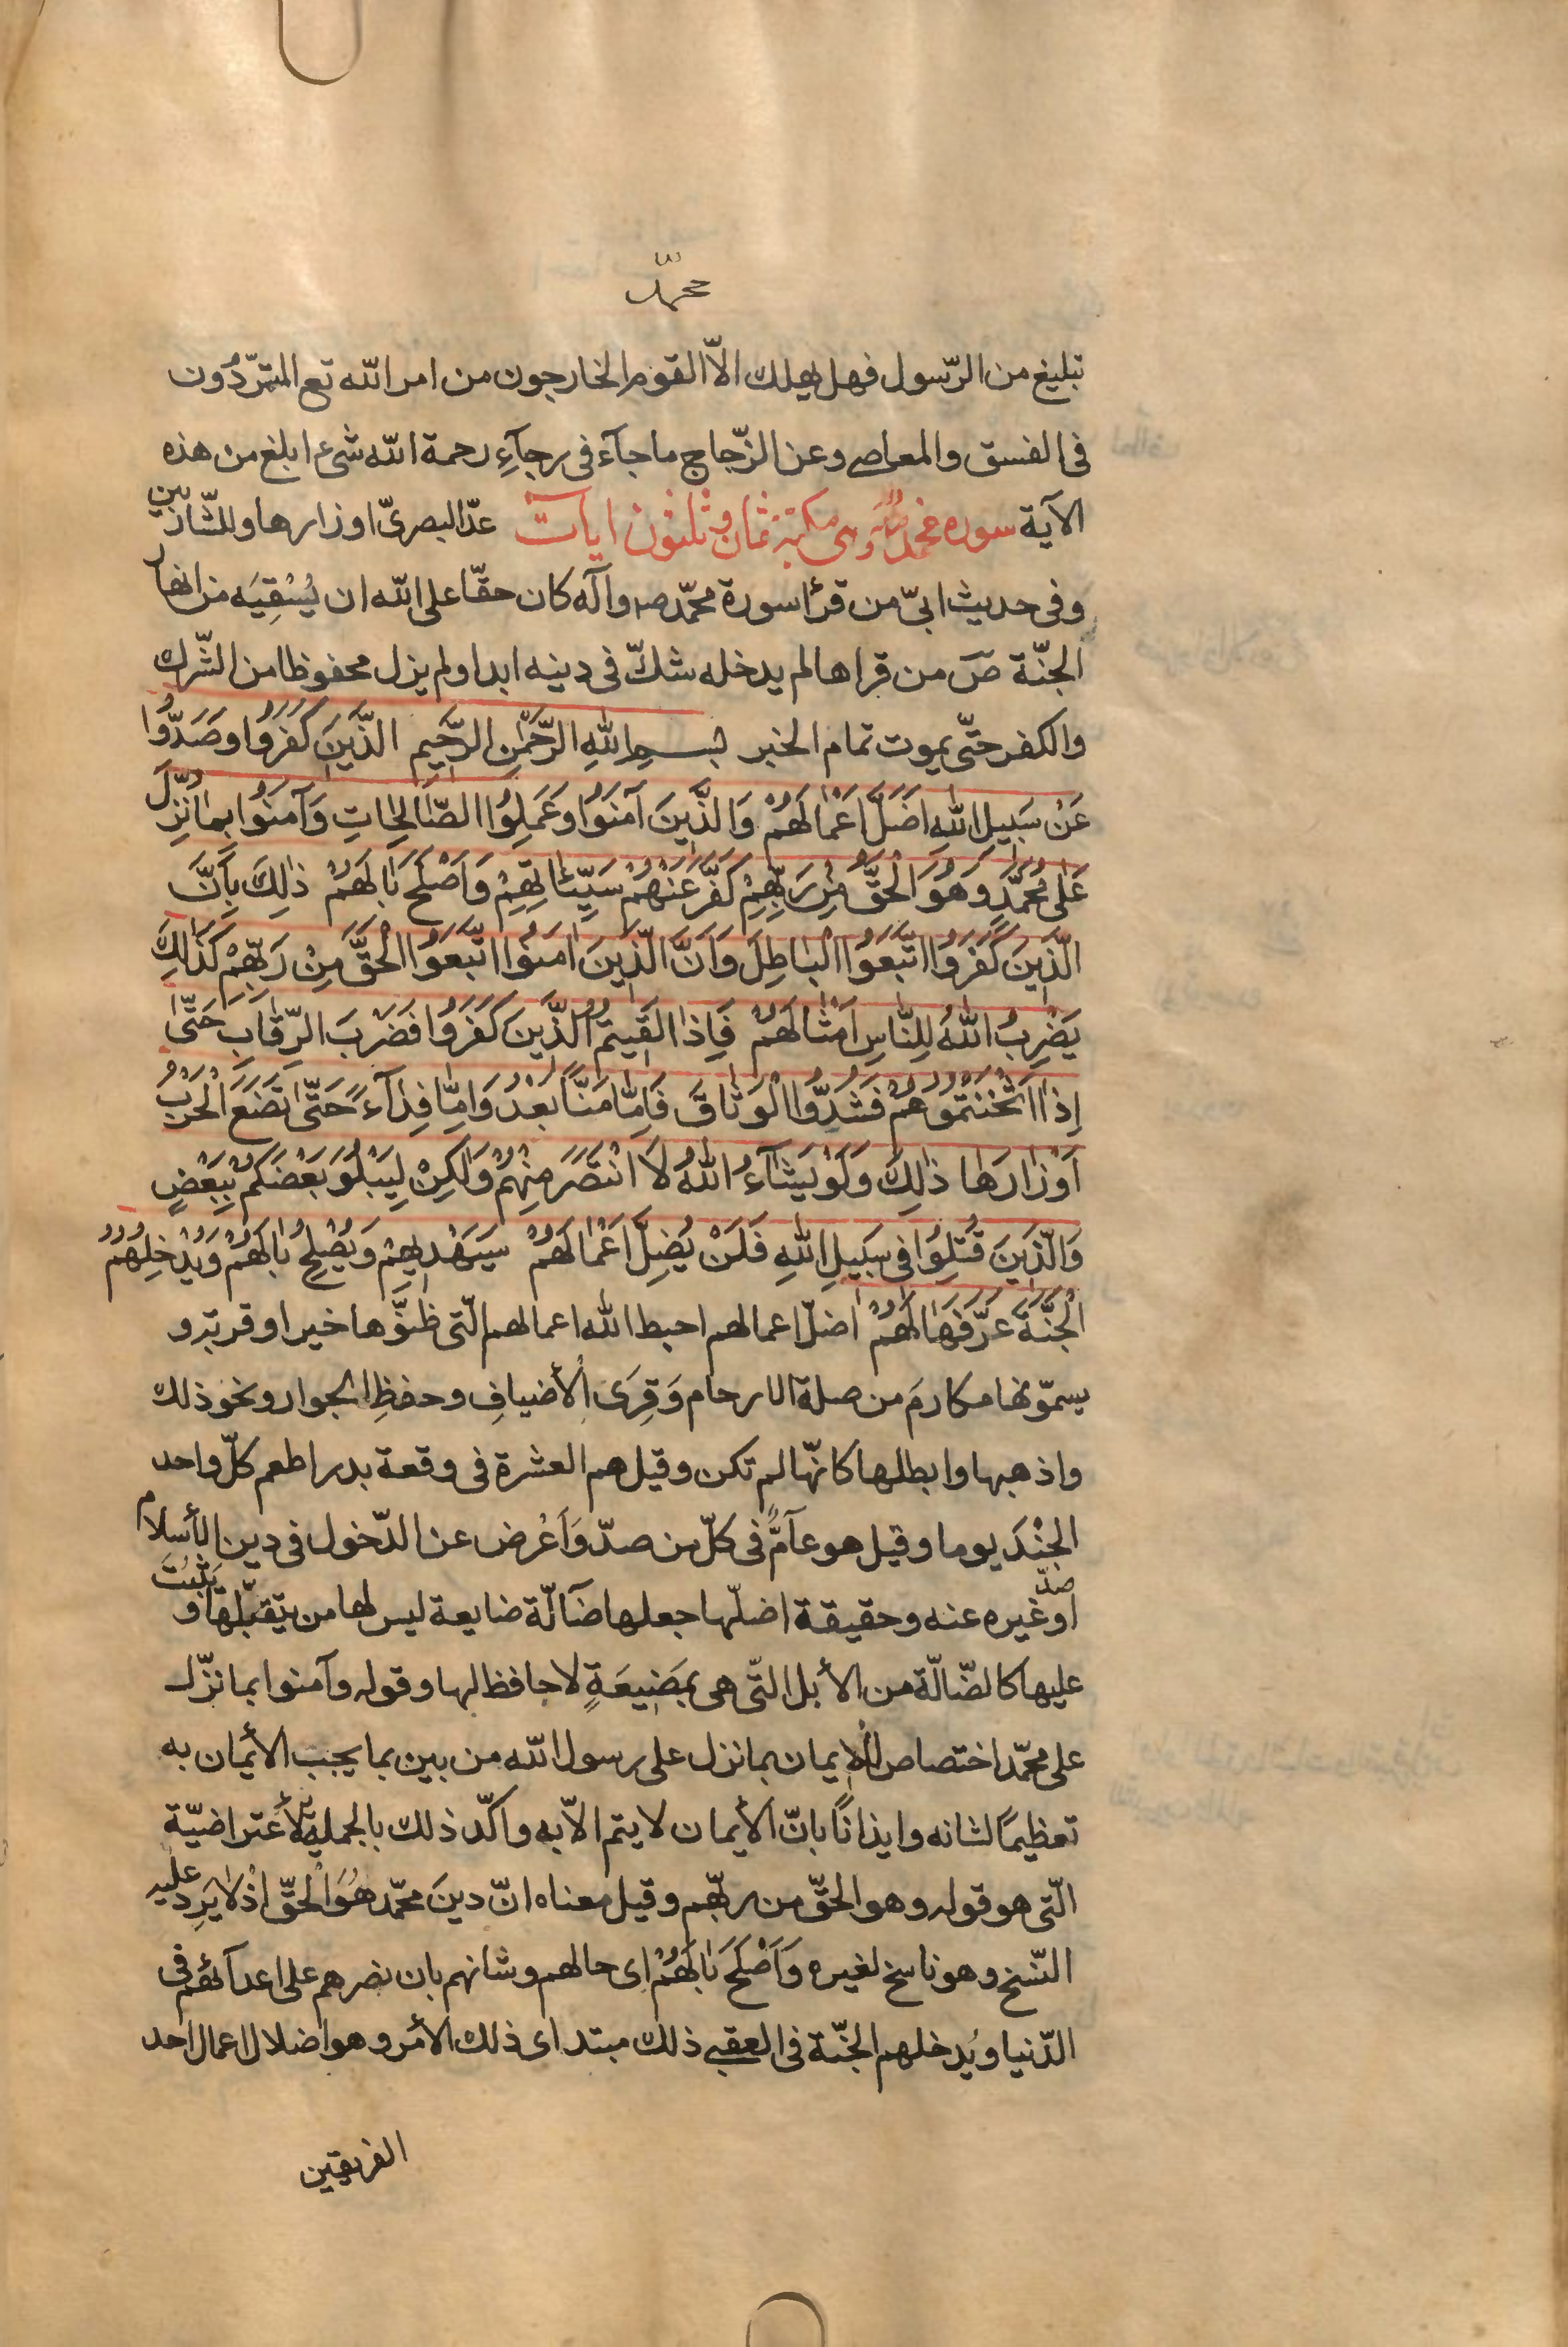 محمّد
تبليغ من الرّسول فهل يهلك الاّ القوم الخارجون من امر الله تع المتمرّدون
فى الفسق والمعاصى وعن الزّجاج ما جآء فى رجآءِ رحمة الله شىء ابلغ من هذه
الآية سوره محمد وهى مكية ثمان وثلثون ايات عدّ البصرىّ اوزارها وللشّاربين
وفى حديث ابىّ من قرأ سورة محمّد صه وآله كان حقّا على الله ان يُسْقِيَه من انهار
الجنّة صَ من قراها لم يدخله شكّ فى دينه ابدا ولم يزل محفوظا من الشّرك
والكفر حتّى يموت تمام الخبر بسم اللهِ الرّحمٰن الرّحيم الَّذينَ كَفَرُوا وَصَدُّوا
عَنْ سَبيلِ اللهِ اَضَلَّ اَعْمٰالَهُمْ وَالَّذينَ آمَنُوا وَعَمِلُوا الصّٰالِحٰاتِ وَآمَنُوا بِمٰا نُزِّلَ
عَلىٰ مُحَمَّدٍ وَهُوَ الْحَقُّ مِنْ رَبِّهِمْ كَفَّرَ عَنْهُمْ سَيِّئٰاتِهِمْ وَاَصْلَحَ بٰالَهُمْ ذٰلِكَ بِاَنَّ
الَّذينَ كَفَرُوا اتَّبَعُوا الْبٰاطِلَ وَاَنَّ الَّذينَ اٰمَنُوا اتَّبَعُوا الْحَقَّ مِنْ رَبِّهِمْ كَذٰلِكَ
يَضْرِبُ اللهُ لِلنّٰاسِ اَمْثٰالَهُمْ فَاِذٰا لَقيتُمُ الَّذينَ كَفَرُوا فَضَرْبَ الرِّقٰابِ حَتّىٰ
اِذٰا اَثْخَنْتُمُوهُمْ فَشُدُّوا الْوَثٰاقَ فَاِمّٰا مَنًّا بَعْدُ وَاِمّٰا فِدٰآءً حَتّىٰ تَضَعَ الْحَرْبُ
اَوْزٰارَهٰا ذٰلِكَ وَلَوْ يَشٰآءُ اللهُ لَانْتَصَرَ مِنْهُمْ وَلٰكِنْ لِيَبْلُوَ بَعْضَكُمْ بِبَعْضٍ
وَالَّذينَ قُتِلُوا فى سَبيلِ اللهِ فَلَنْ يُضِلَّ اَعْمٰالَهُمْ سَيَهْديهِمْ وَيُصْلِحُ بٰالَهُمْ وَيُدْخِلُهُمُ
الْجَنَّةَ عَرَّفَهٰا لَهُمْ اضلّ اعمالهم احبط الله اعمالهم الّتى ظنّوها خيرا وقربة و
يسمّونها مكارمَ من صلة الارحام وَقِرَى الأضيافِ وحفظِ الجوار ونحو ذلك
واذهبها وابطلها كانّها لم تكن وقيل هم العشرة فى وقعة بدر اطعم كلّ واحد
الجُنْدَ يوما وقيل هو عآمٌّ فى كلّ من صدّ وَاَعْرض عن الدّخول فى دين الأسلام
او صدّ غيره عنه وحقيقة اضلّها جعلها ضآلّة ضايعة ليس لها من يتقبّلها و يثْبُتَ
عليها كالضّالّة من الأبل التّى هى بمَضيعَةٍ لا حافظ لها وقوله وآمنوا بما نزّل
على محمّد اختصاص للإيمان بما نزل على رسول الله من بين بما يجب الأيمان به
تعظيمًا لشانه وايذانًا بانّ الأيمان لا يتم الاّ به واكّد ذلك بالجملة الأعتراضيّة
الّتى هو قوله وهو الحقّ من ربّهم وقيل معناه انّ دينَ محمّد هُوَ الْحَقّ اذْ لا يَرِد عليه
النّسخ وهو ناسخ لغيره وَاَصْلَحَ بٰالَهُمْ اى حالهم وشانهم بان نصرهم على اعدآئهم فى
الدّنيا ويُدخلهم الجنّة فى العقبى ذلك مبتدا اى ذلك الأمر وهو اضلال اعمال احد
الفريقين